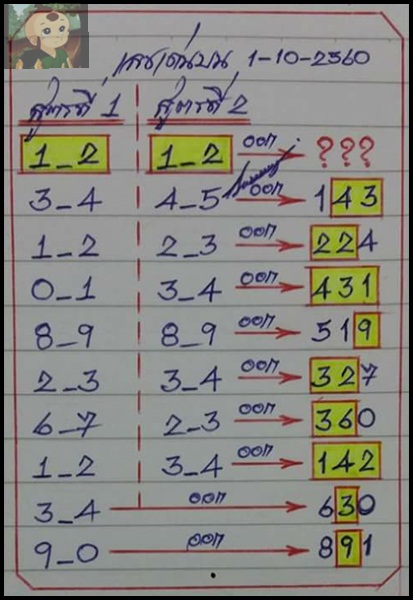 เลขเด่นบน 1-10-2560
สูตรที่ 1 สูตรที่ 2
1_2 1_2 ออก ???
3_4 4_5 ออก 143
1_2 2_3 ออก 224
0_1 3_4 ออก 431
8_9 8_9 ออก 519
2_3 3_4 ออก 327
6_7 2_3 ออก 360
1_2 3_4 ออก 142
3_4 ออก 630
9_0 ออก 891